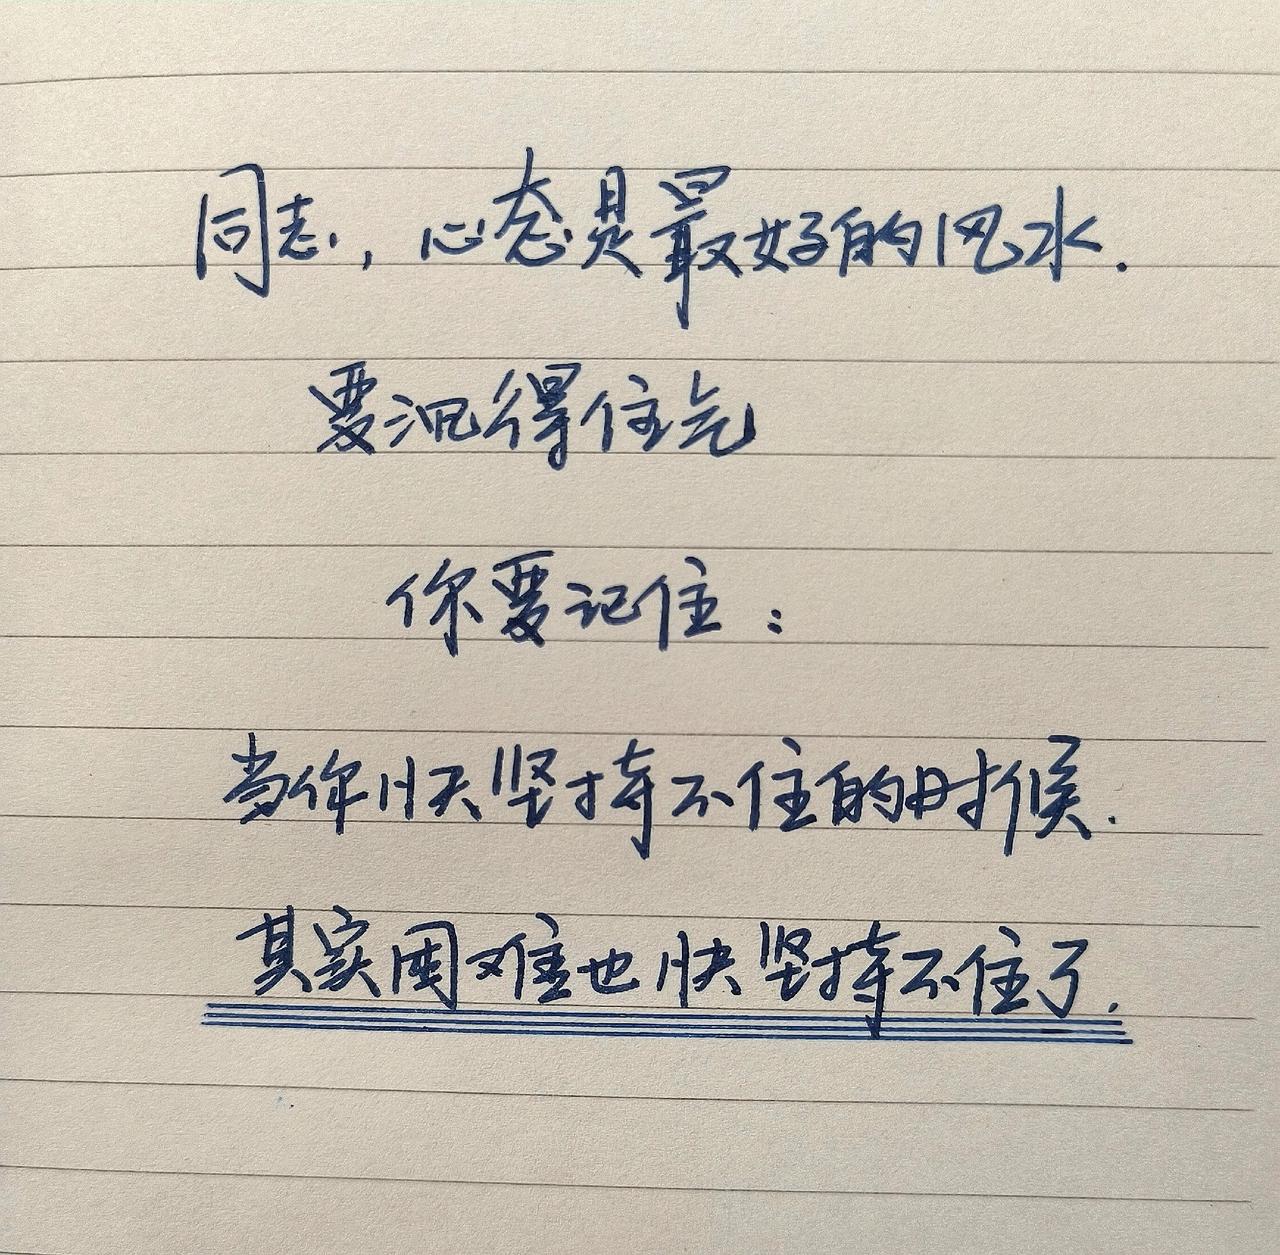 同志，心态是最好的风水.
要沉得住气
你要记住：
当你快坚持不住的时候.
其实困难也快坚持不住了.